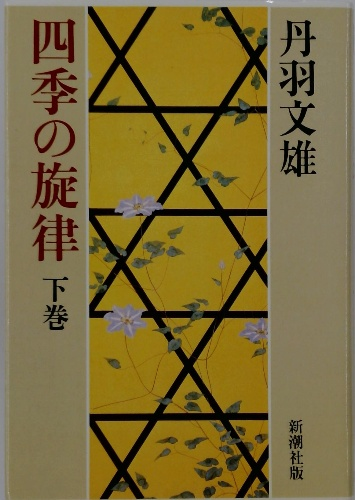 丹羽文雄
四季の旋律
下巻
新潮社版